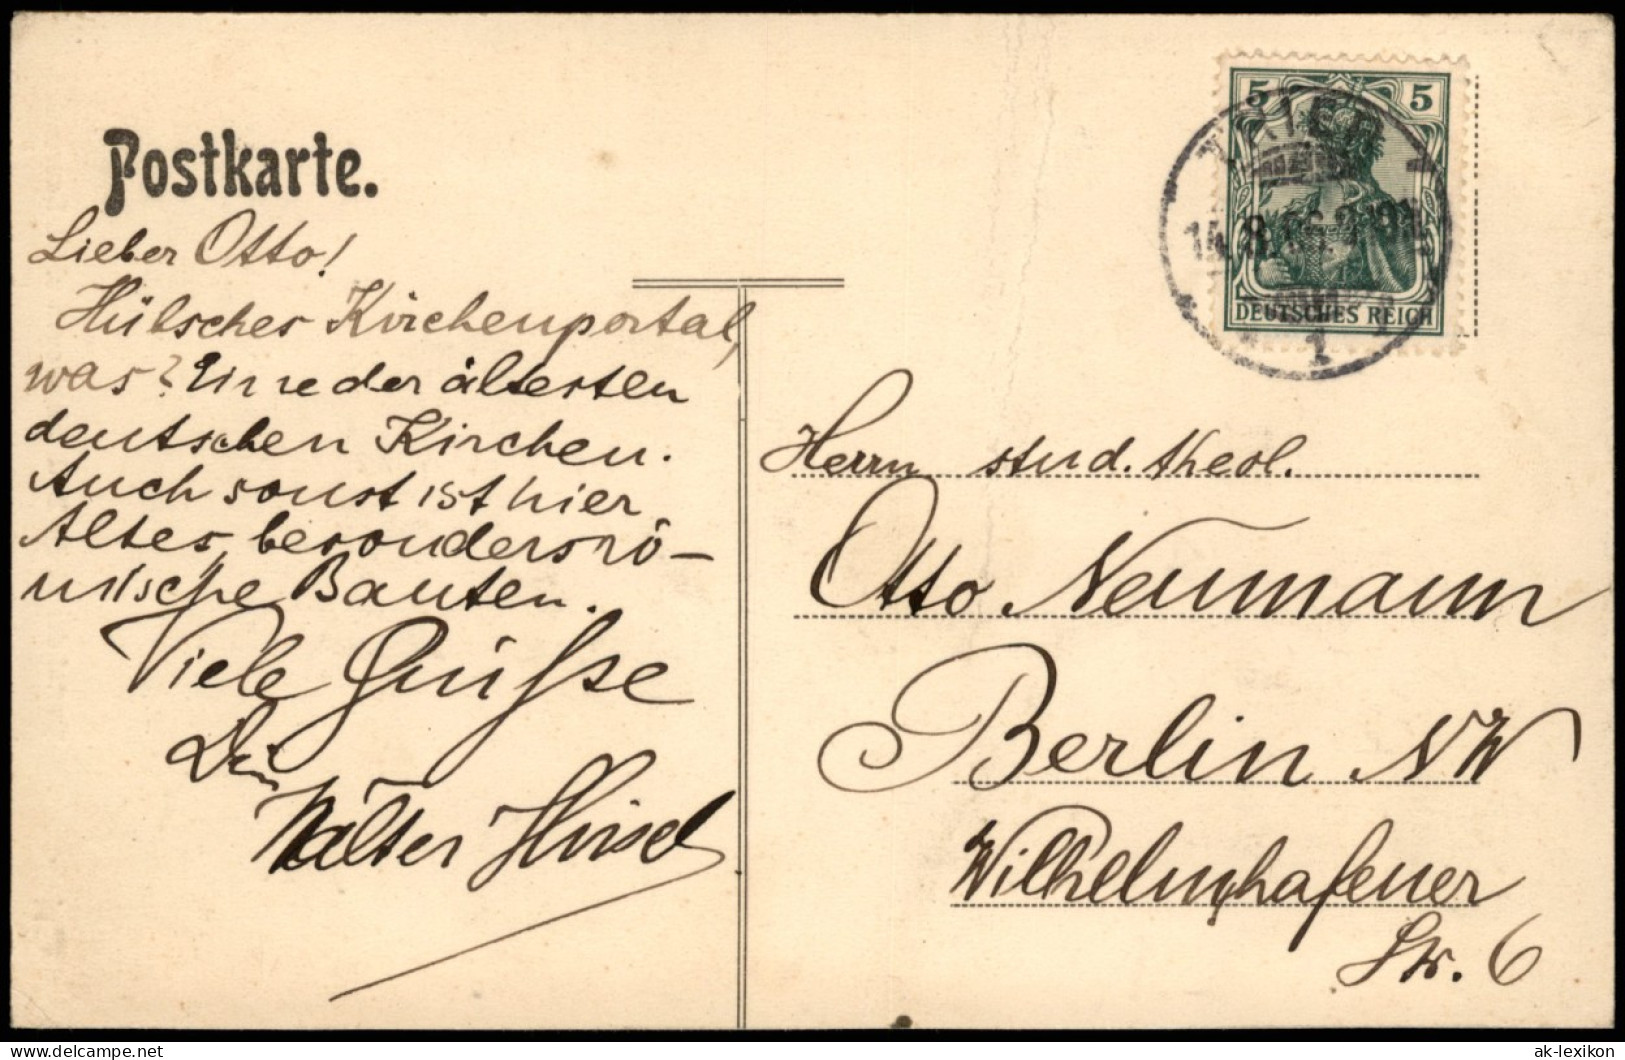 Postkarte.
Lieber Otto!
Hübsches Kirchenportal,
was? Eine der ältesten
deutschen Kirchen.
Auch sonst ist hier
Altes, besonders rö-
mische Bauten.
Viele Grüsse
Dein
Walter
5 5
TRIER
14.8.06.
1
DEUTSCHES REICH
Herrn stud. theol.
Otto Neumann
Berlin NW
Wilhelmshafener
Str. 6
www.delcampe.net
ak-lexikon